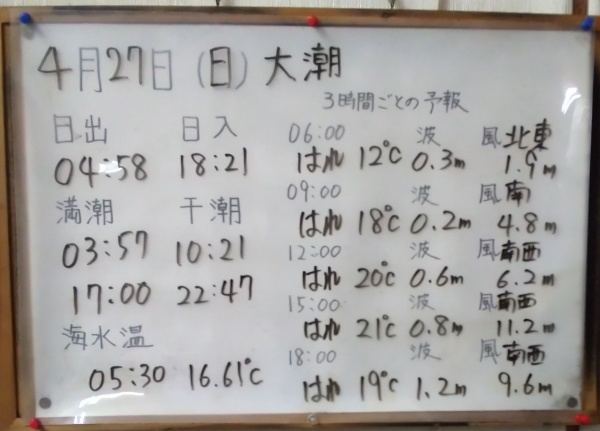 4月27日(日)大潮
3時間ごとの予報
日出 日入
04:58 18:21
満潮 干潮
03:57 10:21
17:00 22:47
海水温
05:30 16.61℃
06:00 波 風北東
はれ 12℃ 0.3m 1.9m
09:00 波 風南
はれ 18℃ 0.2m 4.8m
12:00 波 風南西
はれ 20℃ 0.6m 6.2m
15:00 波 風南西
はれ 21℃ 0.8m 11.2m
18:00 波 風南西
はれ 19℃ 1.2m 9.6m